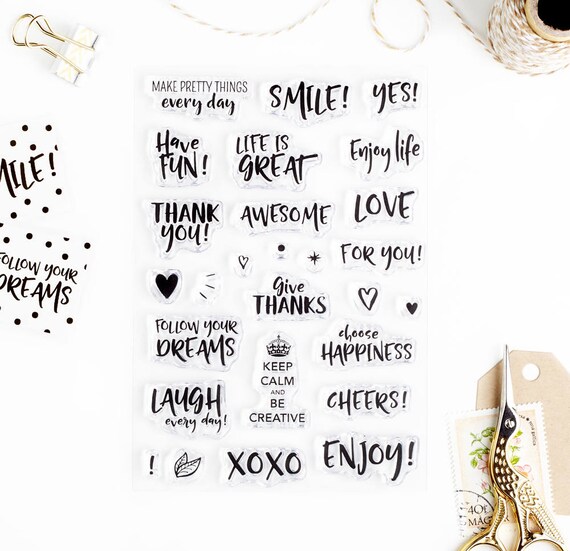 MAKE PRETTY THINGS
every day
SMILE!
YES!
Have
FUN!
LIFE IS
GREAT
Enjoy life
THANK
YOU!
AWESOME
LOVE
FOR YOU!
Give
THANKS
FOLLOW YOUR
DREAMS
KEEP
CALM
AND
BE
CREATIVE
choose
HAPPINESS
LAUGH
every day!
CHEERS!
!
XOXO
ENJOY!
MILE!
FOLLOW YOUR
DREAMS